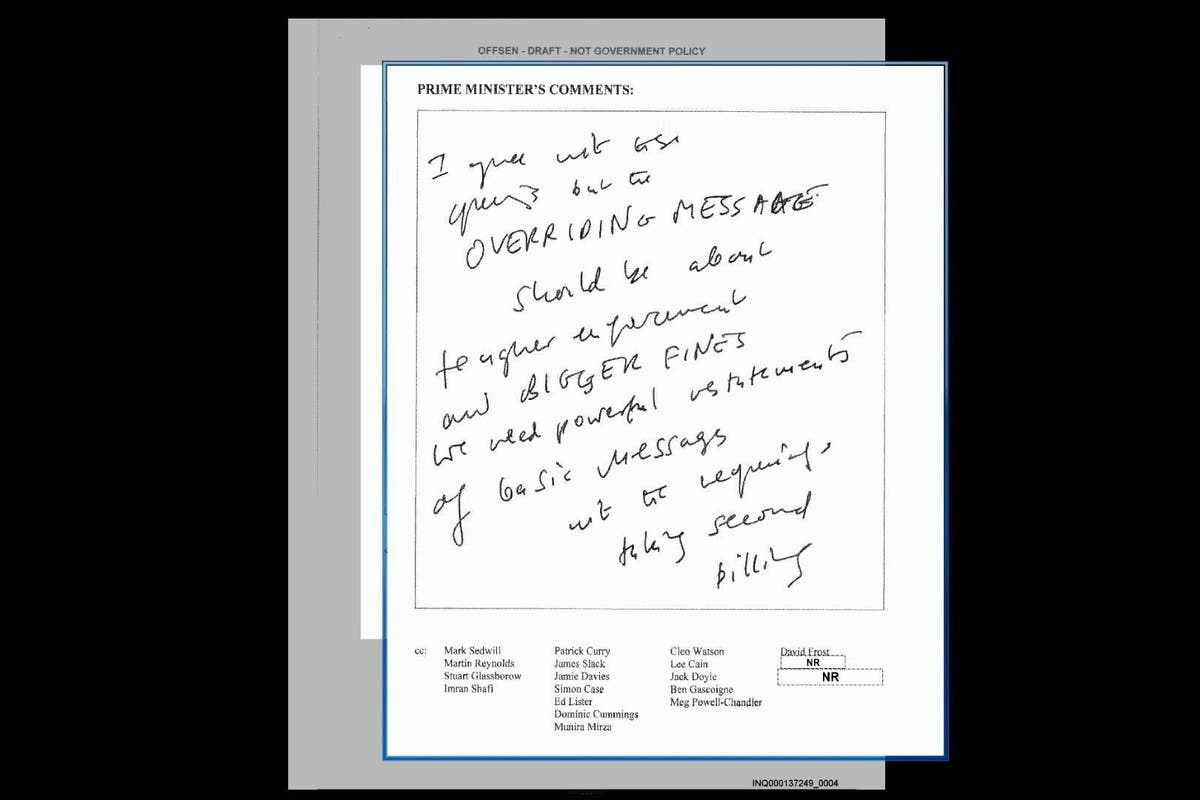 OFFSEN - DRAFT - NOT GOVERNMENT POLICY
PRIME MINISTER'S COMMENTS:
I agree with
but the
OVERRIDING MESSAGE
should be about
tougher enforcement
and BIGGER FINES
We need powerful restatements
of basic message
with the
taking second
billing
cc: Mark Sedwill
Martin Reynolds
Stuart Glassborow
Imran Shafi
Patrick Curry
James Slack
Jamie Davies
Simon Case
Ed Lister
Dominic Cummings
Munira Mirza
Cleo Watson
Lee Cain
Jack Doyle
Ben Gascoigne
Meg Powell-Chandler
David Frost
NR
NR
INQ000137249_0004